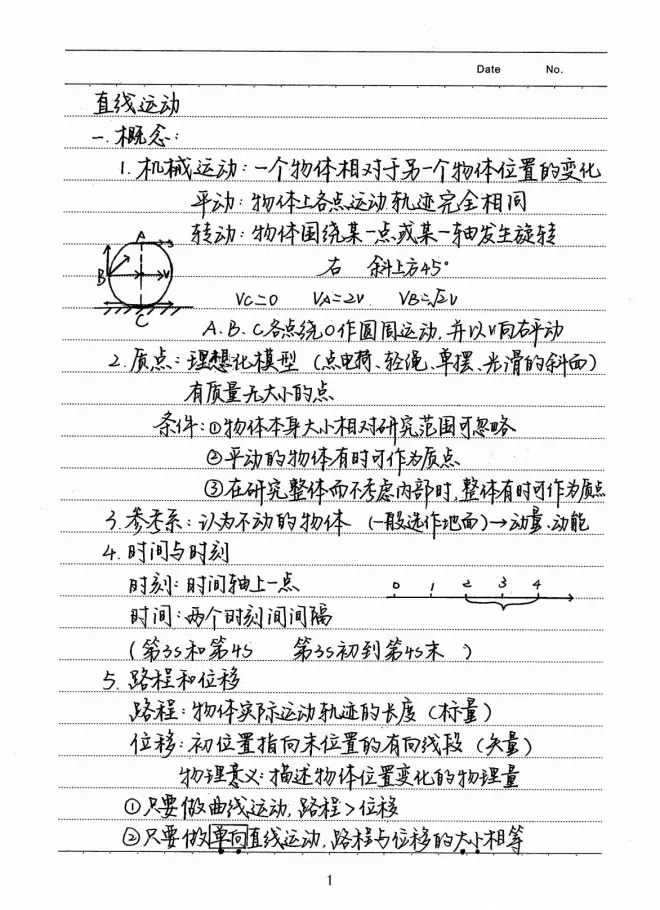 Date No.
直线运动
一.概念:
1.机械运动:一个物体相对于另一个物体位置的变化
平动:物体上各点运动轨迹完全相同
转动:物体围绕某一点或某一轴发生旋转
A
B
V
C
右 斜上方45°
VC=0 VA=2V VB=√2V
A.B.C各点绕O作圆周运动,并以V向右平动
2.质点:理想化模型(点电荷、轻绳、单摆、光滑的斜面)
有质量无大小的点
条件:①物体本身大小相对研究范围可忽略
②平动的物体有时可作为质点
③在研究整体而不考虑内部时,整体有时可作为质点
3.参考系:认为不动的物体(一般选作地面)→动量、动能
4.时间与时刻
时刻:时间轴上一点
0 1 2 3 4
时间:两个时刻间间隔
(第3s和第4s 第3s初到第4s末)
5.路程和位移
路程:物体实际运动轨迹的长度(标量)
位移:初位置指向末位置的有向线段(矢量)
物理意义:描述物体位置变化的物理量
①只要做曲线运动,路程>位移
②只要做单向直线运动,路程与位移的大小相等
1